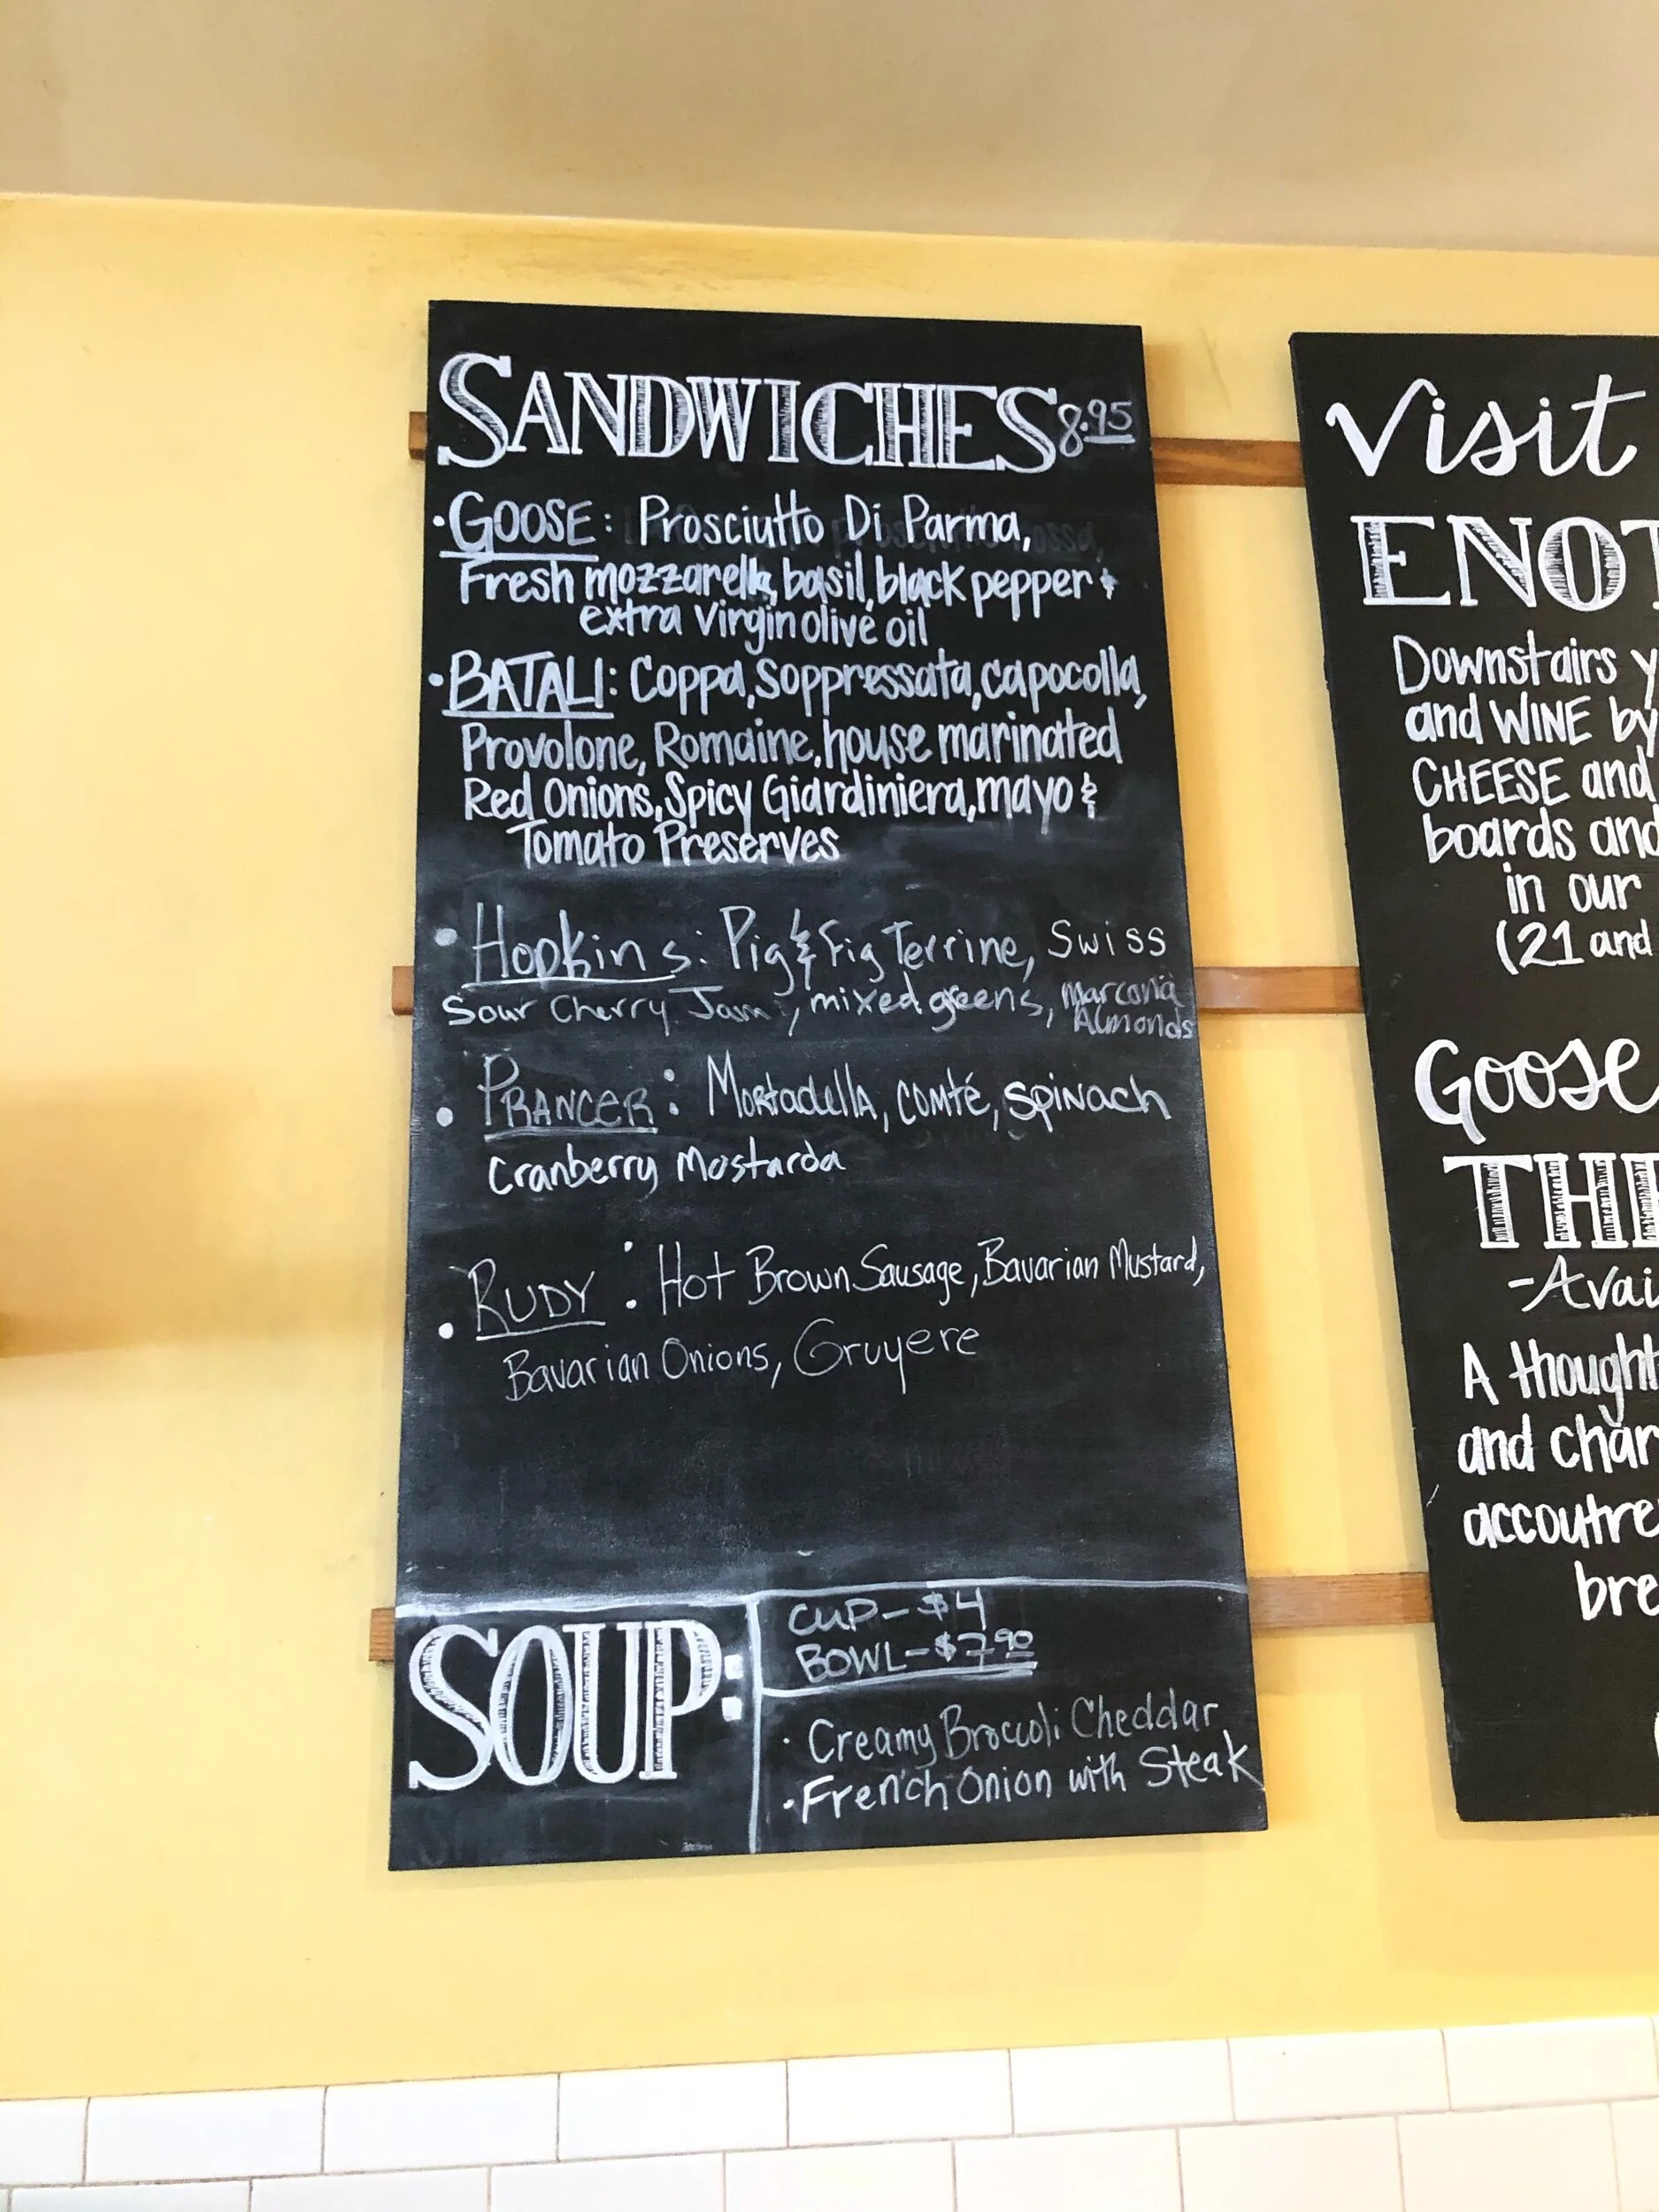 SANDWICHES 8.95
• GOOSE: Prosciutto Di Parma,
Fresh mozzarella, basil, black pepper &
extra virgin olive oil
• BATALI: Coppa, Soppressata, capocolla,
Provolone, Romaine, house marinated
Red Onions, Spicy Giardiniera, mayo &
Tomato Preserves
• Hopkins: Pig & Fig Terrine, Swiss
Sour Cherry Jam, mixed greens, Marcona
Almonds
• PRANCER: Mortadella, Comté, Spinach
Cranberry Mostarda
• RUDY: Hot Brown Sausage, Bavarian Mustard,
Bavarian Onions, Gruyere
SOUP:
CUP-$4
BOWL-$7.90
• Creamy Broccoli Cheddar
• French Onion with Steak
Visit
ENOT
Downstairs y
and WINE by
CHEESE and
boards and
in our
(21 and
Goose
THE
-Avai
A thought
and char
accoutre
bre